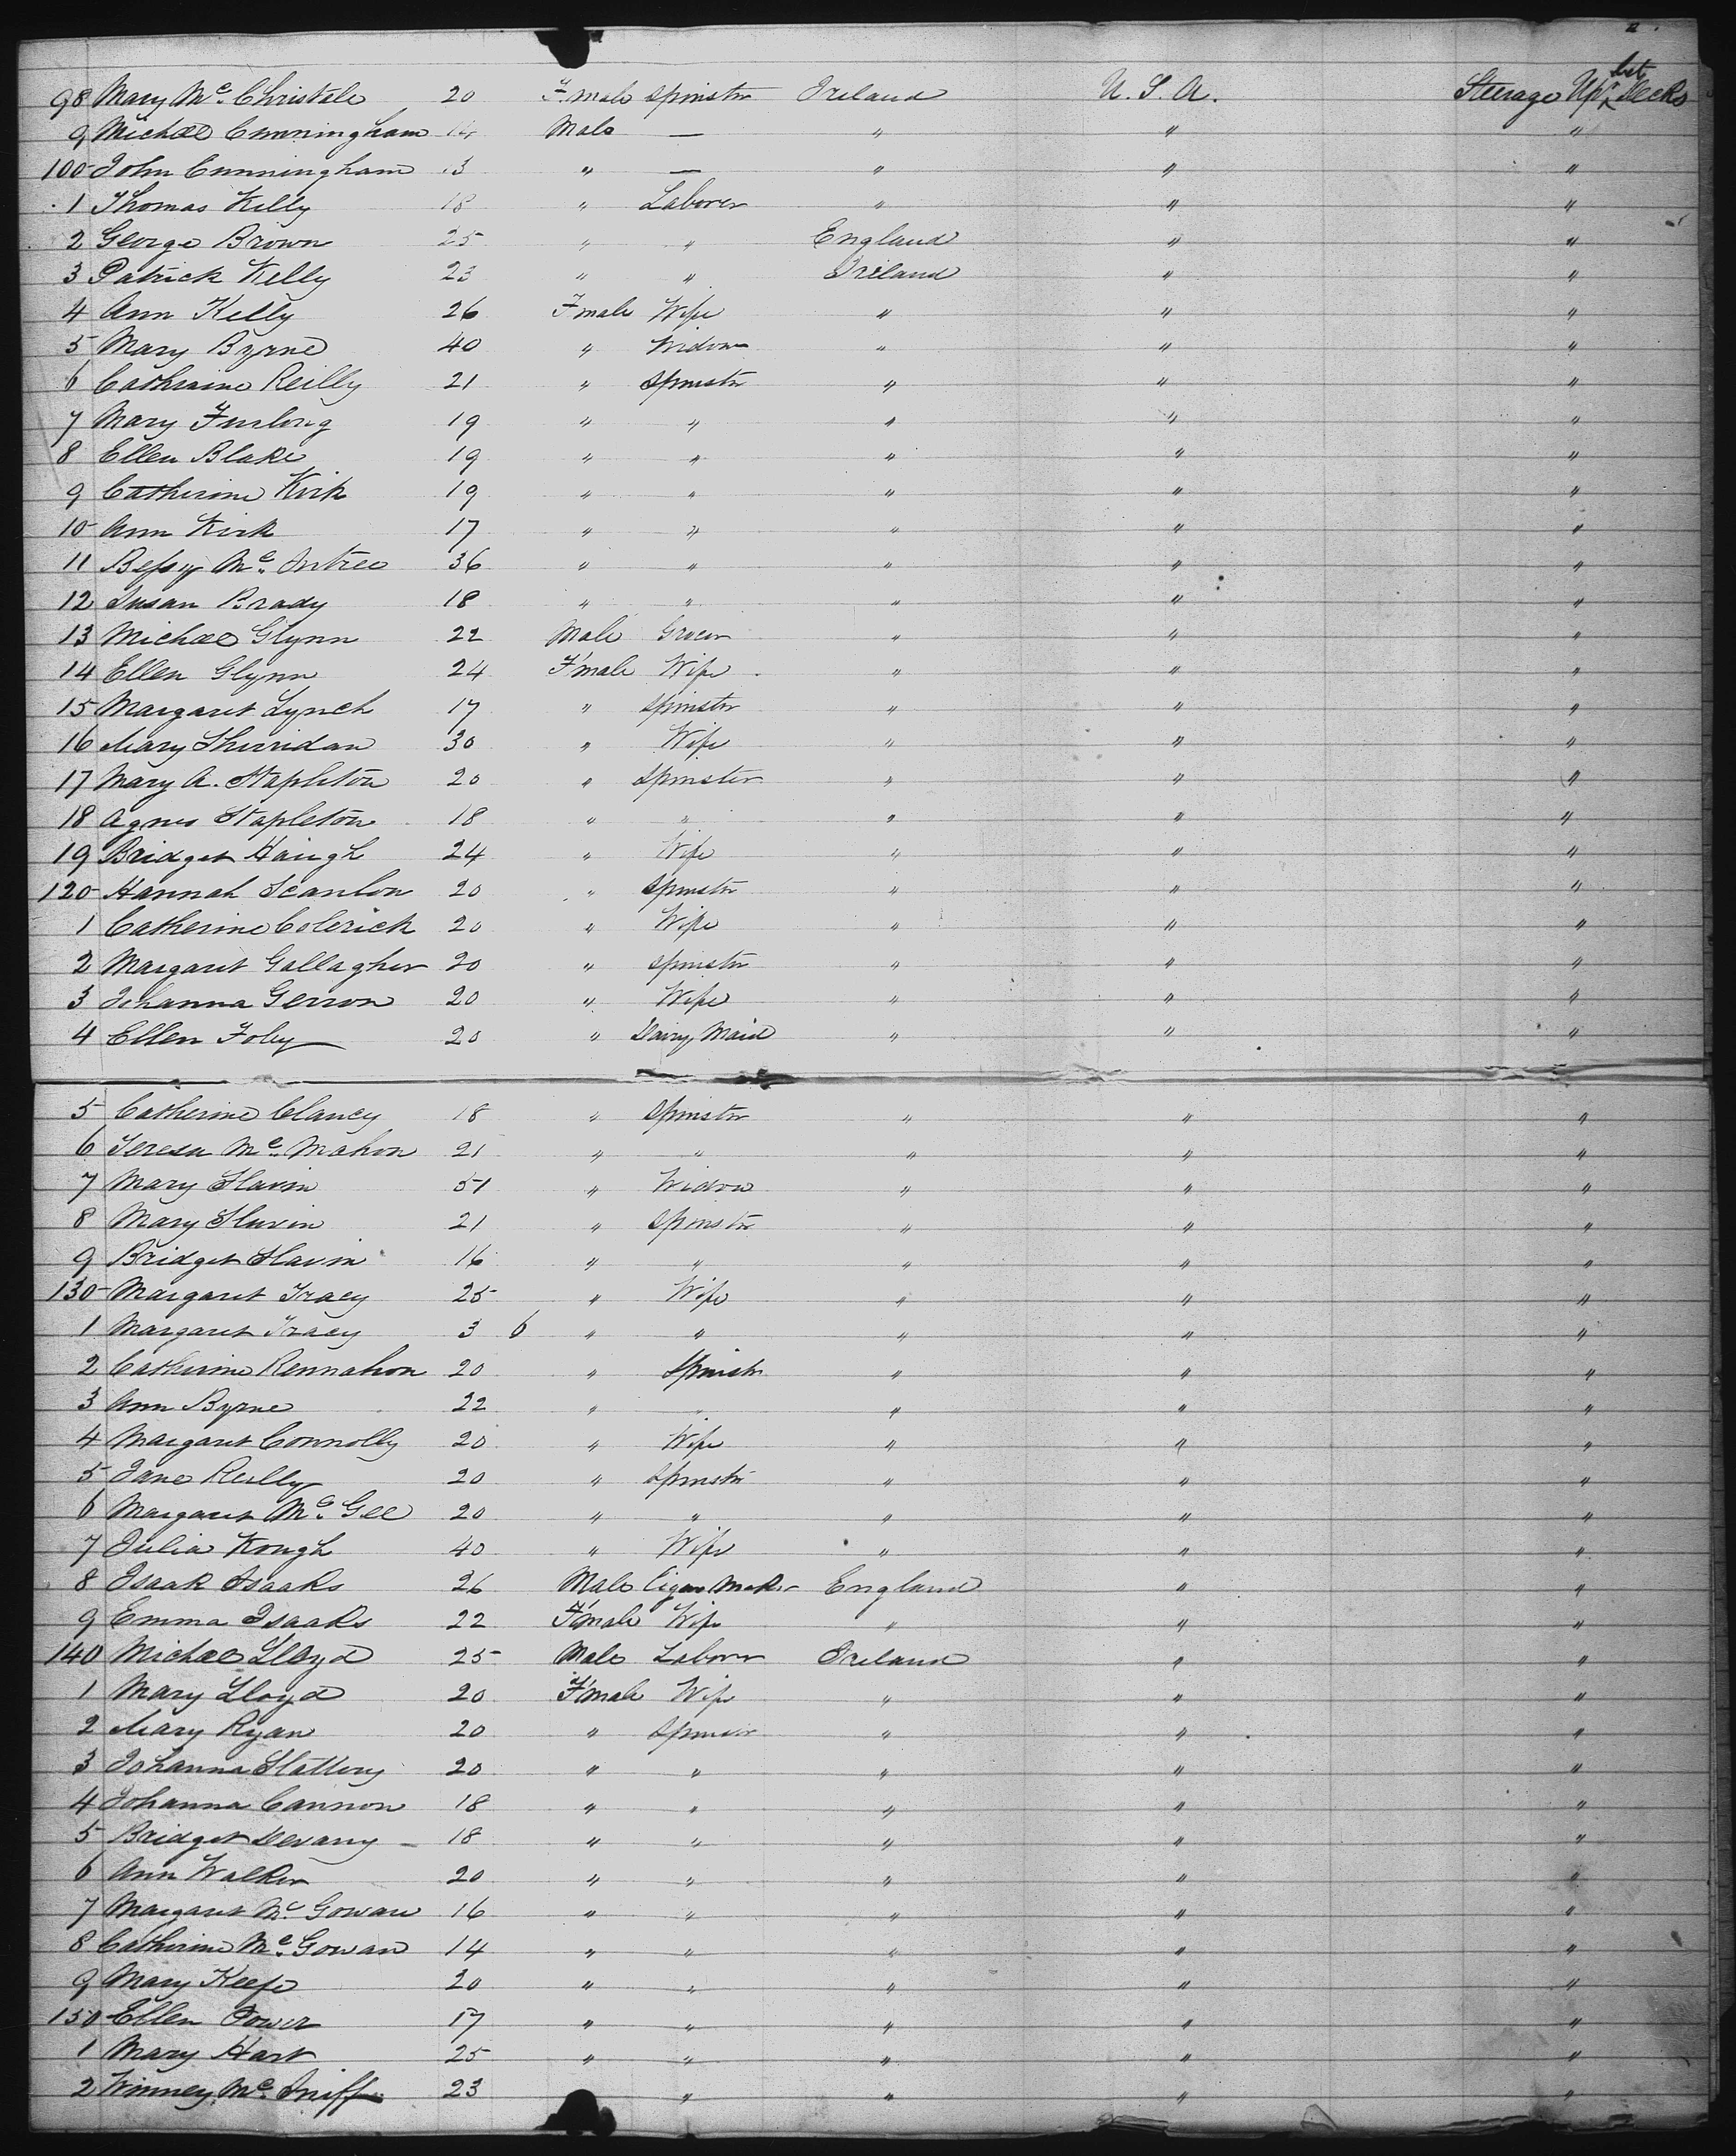 98 Mary Mc. Christale 20 F.male Spinstr Ireland U. S. A. Steerage Upr bet Decks
9 Michael Cunningham 14 Male — " " "
100 John Cunningham 13 " — " " "
1 Thomas Kelly 18 " Laborer " " "
2 George Brown 25 " " England " "
3 Patrick Kelly 23 " " Ireland " "
4 Ann Kelly 26 F'male Wife " " "
5 Mary Byrne 40 " Widow " " "
6 Catherine Reilly 21 " Spinstr " " "
7 Mary Furlong 19 " " " " "
8 Ellen Blake 19 " " " " "
9 Catherine Kirk 19 " " " " "
10 Ann Kirk 17 " " " " "
11 Bessy Mc. Entree 36 " " " " "
12 Susan Brady 18 " " " " "
13 Michael Glynn 22 Male Grocer " " "
14 Ellen Glynn 24 F'male Wife " " "
15 Margaret Lynch 17 " Spinstr " " "
16 Mary Sherridan 30 " Wife " " "
17 Mary A. Stapleton 20 " Spinster " " "
18 Agnes Stapleton 18 " " " " "
19 Bridget Haugh 24 " Wife " " "
120 Hannah Scanlon 20 " Spinstr " " "
1 Catherine Colerick 20 " Wife " " "
2 Margaret Gallagher 20 " Spinstr " " "
3 Johanna Gerron 20 " Wife " " "
4 Ellen Foley 20 " Dairy Maid " " "
5 Catherine Clancy 18 " Spinstr " " "
6 Teresa Mc. Mahon 21 " " " " "
7 Mary Slavin 51 " Widow " " "
8 Mary Slavin 21 " Spinstr " " "
9 Bridget Slavin 16 " " " " "
130 Margaret Tracy 25 " Wife " " "
1 Margaret Tracy 3 6 " " " " "
2 Catherine Rennahon 20 " Spinstr " " "
3 Ann Byrne 22 " " " " "
4 Margaret Connolly 20 " Wife " " "
5 Jane Reilly 20 " Spinstr " " "
6 Margaret Mc. Gee 20 " " " " "
7 Julia Kough 40 " Wife " " "
8 Isaak Isaaks 26 Male Cigar Maker England " "
9 Emma Isaaks 22 F'male Wife " " "
140 Michael Lloyd 25 Male Laborer Ireland " "
1 Mary Lloyd 20 F'male Wife " " "
2 Mary Ryan 20 " Spinstr " " "
3 Johanna Slattery 20 " " " " "
4 Johanna Cannon 18 " " " " "
5 Bridget Devany 18 " " " " "
6 Ann Walker 20 " " " " "
7 Margaret Mc Gowan 16 " " " " "
8 Catherine Mc. Gowan 14 " " " " "
9 Mary Keefe 20 " " " " "
150 Ellen Power 17 " " " " "
1 Mary Hart 25 " " " " "
2 Winney Mc. Sniff 23 " " " "